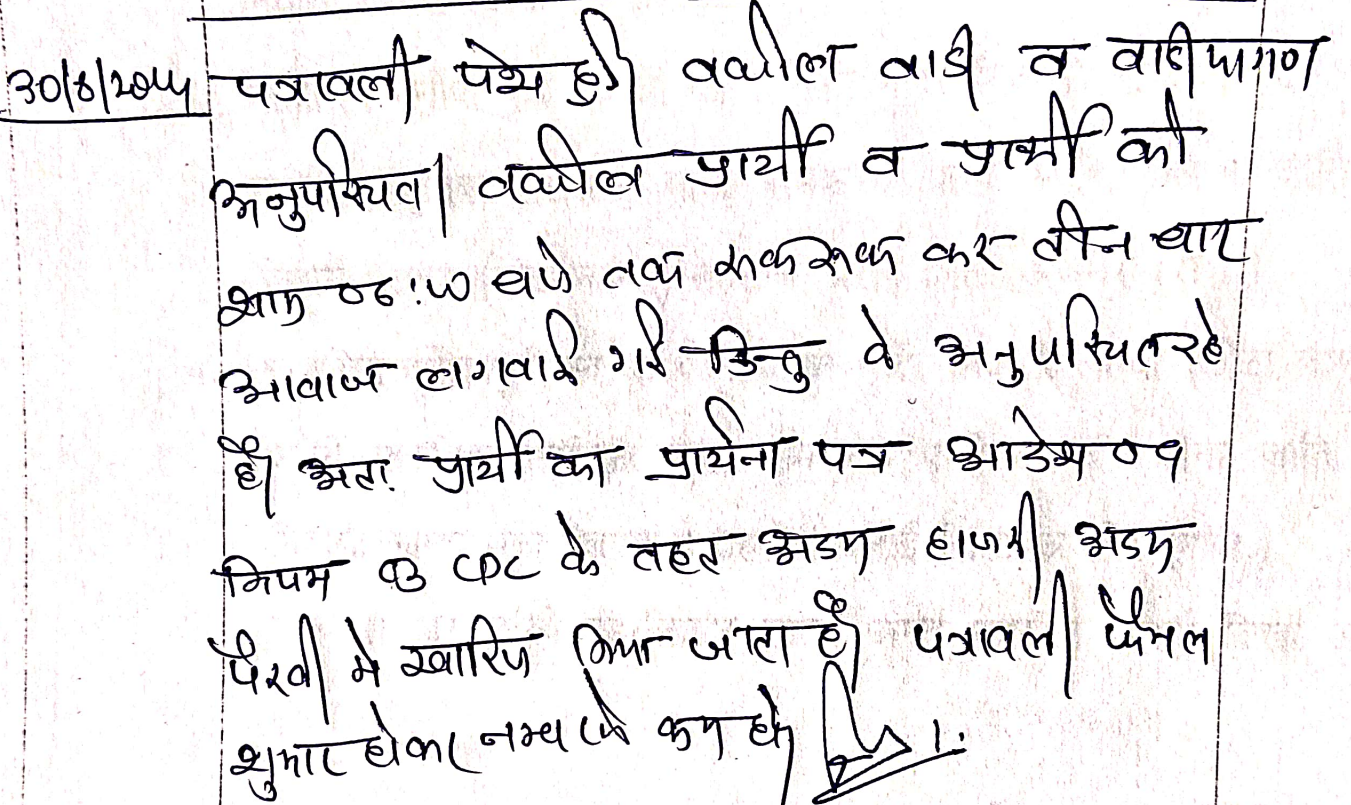 30/8/2024 पत्रावली पेश हुई। वकील वादी व वादीयागण
अनुपस्थित। वकील प्रार्थी व प्रार्थी को
शाम 06:00 बजे तक रूक रूक कर तीन बार
आवाज लगवाई गई किन्तु वे अनुपस्थित रहे
है। अतः प्रार्थी का प्रार्थना पत्र आदेश 09
नियम 03 CPC के तहत अदम हाजरी अदम
पैरवी मे खारिज किया जाता है। पत्रावली फैसल
शुमार होकर नम्बर से कम हो।